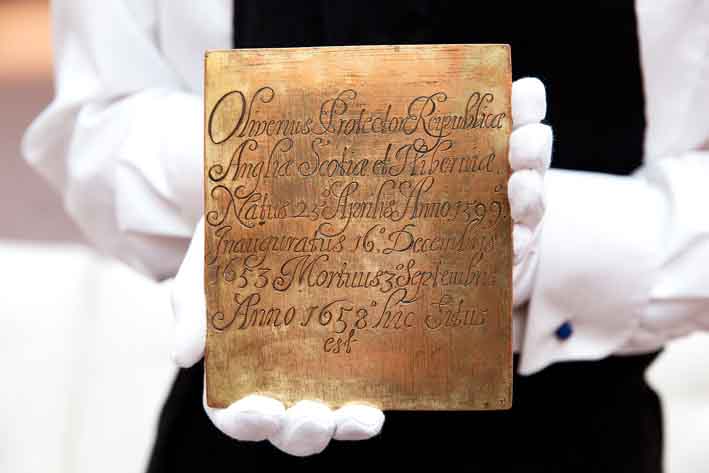 Oliverius Protector Reipublicæ
Angliæ Scotiæ et Hiberniæ.
Natus 25º Aprilis Anno 1599º
Inauguratus 16º Decembris
1653 Mortuus 3º Septembris
Anno 1658º hic Situs
est